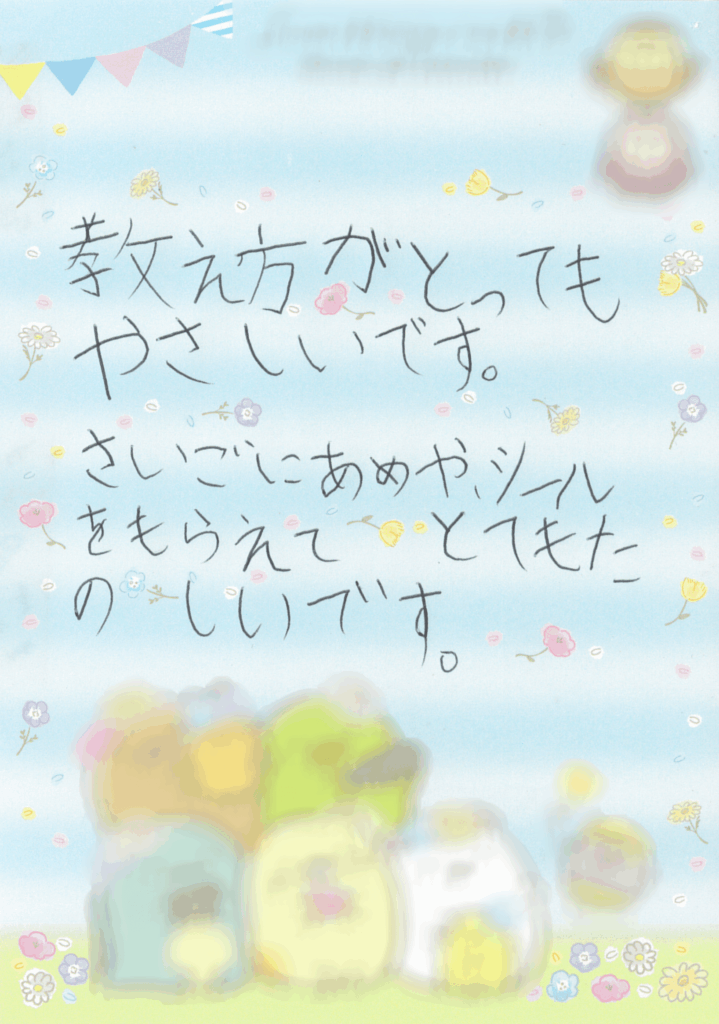 教え方がとっても
やさしいです。
さいごにあめや、シール
をもらえて とてもた
のしいです。